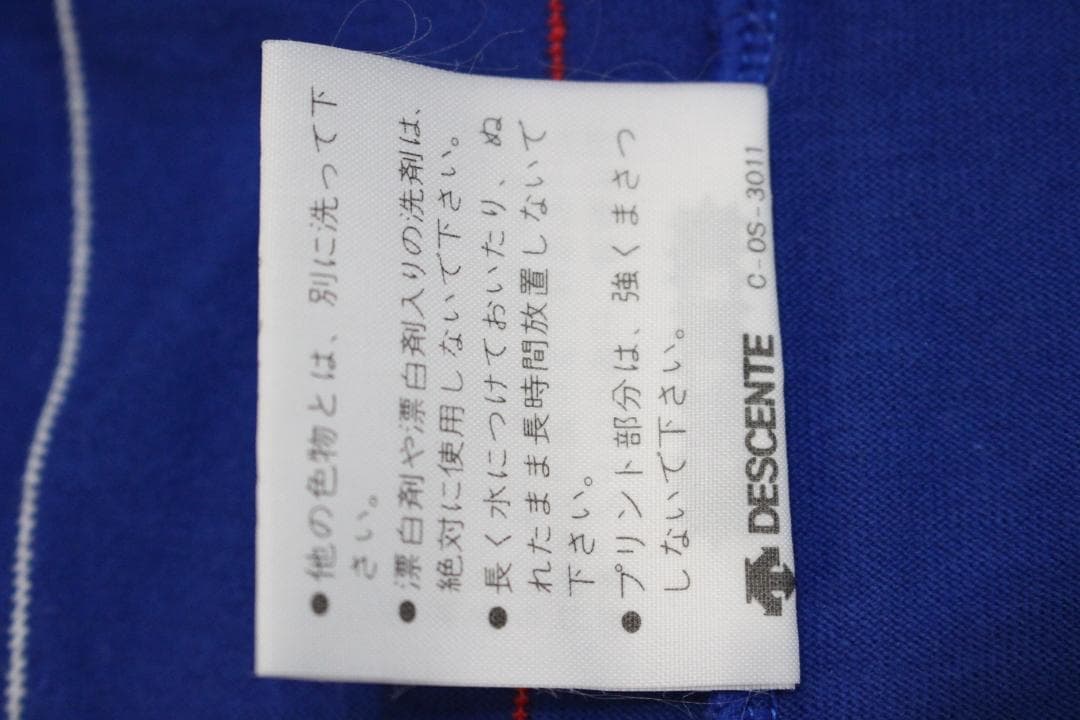 ●他の色物とは、別に洗って下
さい。
●漂白剤や漂白剤入りの洗剤は、
絶対に使用しないで下さい。
●長く水につけておいたり、ぬ
れたまま長時間放置しないで
下さい。
●プリント部分は、強くまさつ
しないで下さい。
DESCENTE C-OS-3011